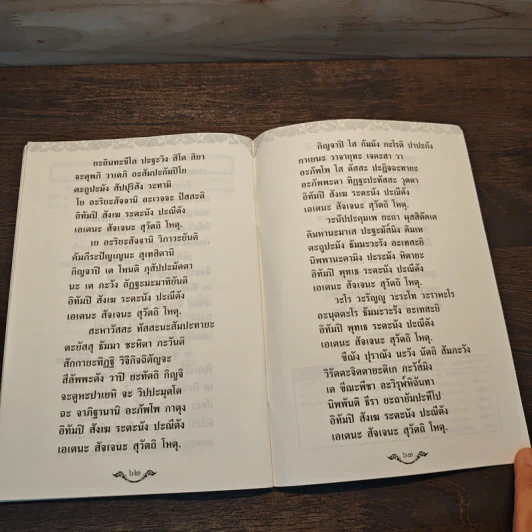 ยะถินทะขีโล ปะฐะวิง สิโต สิยา
จะตุพภิ วาเตภิ อะสัมปะกัมปิโย
ตะถูปะมัง สัปปุริสัง วะทามิ
โย อะริยะสัจจานิ อะเวจจะ ปัสสะติ
อิทัมปิ สังเฆ ระตะนัง ปะณีตัง
เอเตนะ สัจเจนะ สุวัตถิ โหตุ.
เย อะริยะสัจจานิ วิภาวะยันติ
คัมภีระปัญเญนะ สุเทสิตานิ
กิญจาปิ เต โหนติ ภุสัปปะมัตตา
นะ เต ภะวัง อัฏฐะมะมาทิยันติ
อิทัมปิ สังเฆ ระตะนัง ปะณีตัง
เอเตนะ สัจเจนะ สุวัตถิ โหตุ.
สะหาวัสสะ ทัสสะนะสัมปะทายะ
ตะยัสสุ ธัมมา ชะหิตา ภะวันติ
สักกายะทิฏฐิ วิจิกิจฉิตัญจะ
สีลัพพะตัง วาปิ ยะทัตถิ กิญจิ
จะตูหะปาเยหิ จะ วิปปะมุตโต
ฉะ จาภิฐานานิ อะภัพโพ กาตุง
อิทัมปิ สังเฆ ระตะนัง ปะณีตัง
เอเตนะ สัจเจนะ สุวัตถิ โหตุ.
กิญจาปิ โส กัมมัง กะโรติ ปาปะกัง
กาเยนะ วาจายุทะ เจตะสา วา
อะภัพโพ โส ตัสสะ ปะฏิจฉะทายะ
อะภัพพะตา ทิฏฐะปะทัสสะ วุตตา
อิทัมปิ สังเฆ ระตะนัง ปะณีตัง
เอเตนะ สัจเจนะ สุวัตถิ โหตุ.
วะนัปปะคุมเพ ยะถา ผุสสิตัคเค
คิมหานะมาเส ปะฐะมัส๎มิง คิมเห
ตะถูปะมัง ธัมมะวะรัง อะเทสะยิ
นิพพานะคามิง ปะระมัง หิตายะ
อิทัมปิ พุทเธ ระตะนัง ปะณีตัง
เอเตนะ สัจเจนะ สุวัตถิ โหตุ.
วะโร วะรัญญู วะระโท วะราหะโร
อะนุตตะโร ธัมมะวะรัง อะเทสะยิ
อิทัมปิ พุทเธ ระตะนัง ปะณีตัง
เอเตนะ สัจเจนะ สุวัตถิ โหตุ.
ขีณัง ปุราณัง นะวัง นัตถิ สัมภะวัง
วิรัตตะจิตตายะติเก ภะวัส๎มิง
เต ขีณะพีชา อะวิรุฬ๎หิฉันทา
นิพพันติ ธีรา ยะถายัมปะทีโป
อิทัมปิ สังเฆ ระตะนัง ปะณีตัง
เอเตนะ สัจเจนะ สุวัตถิ โหตุ.